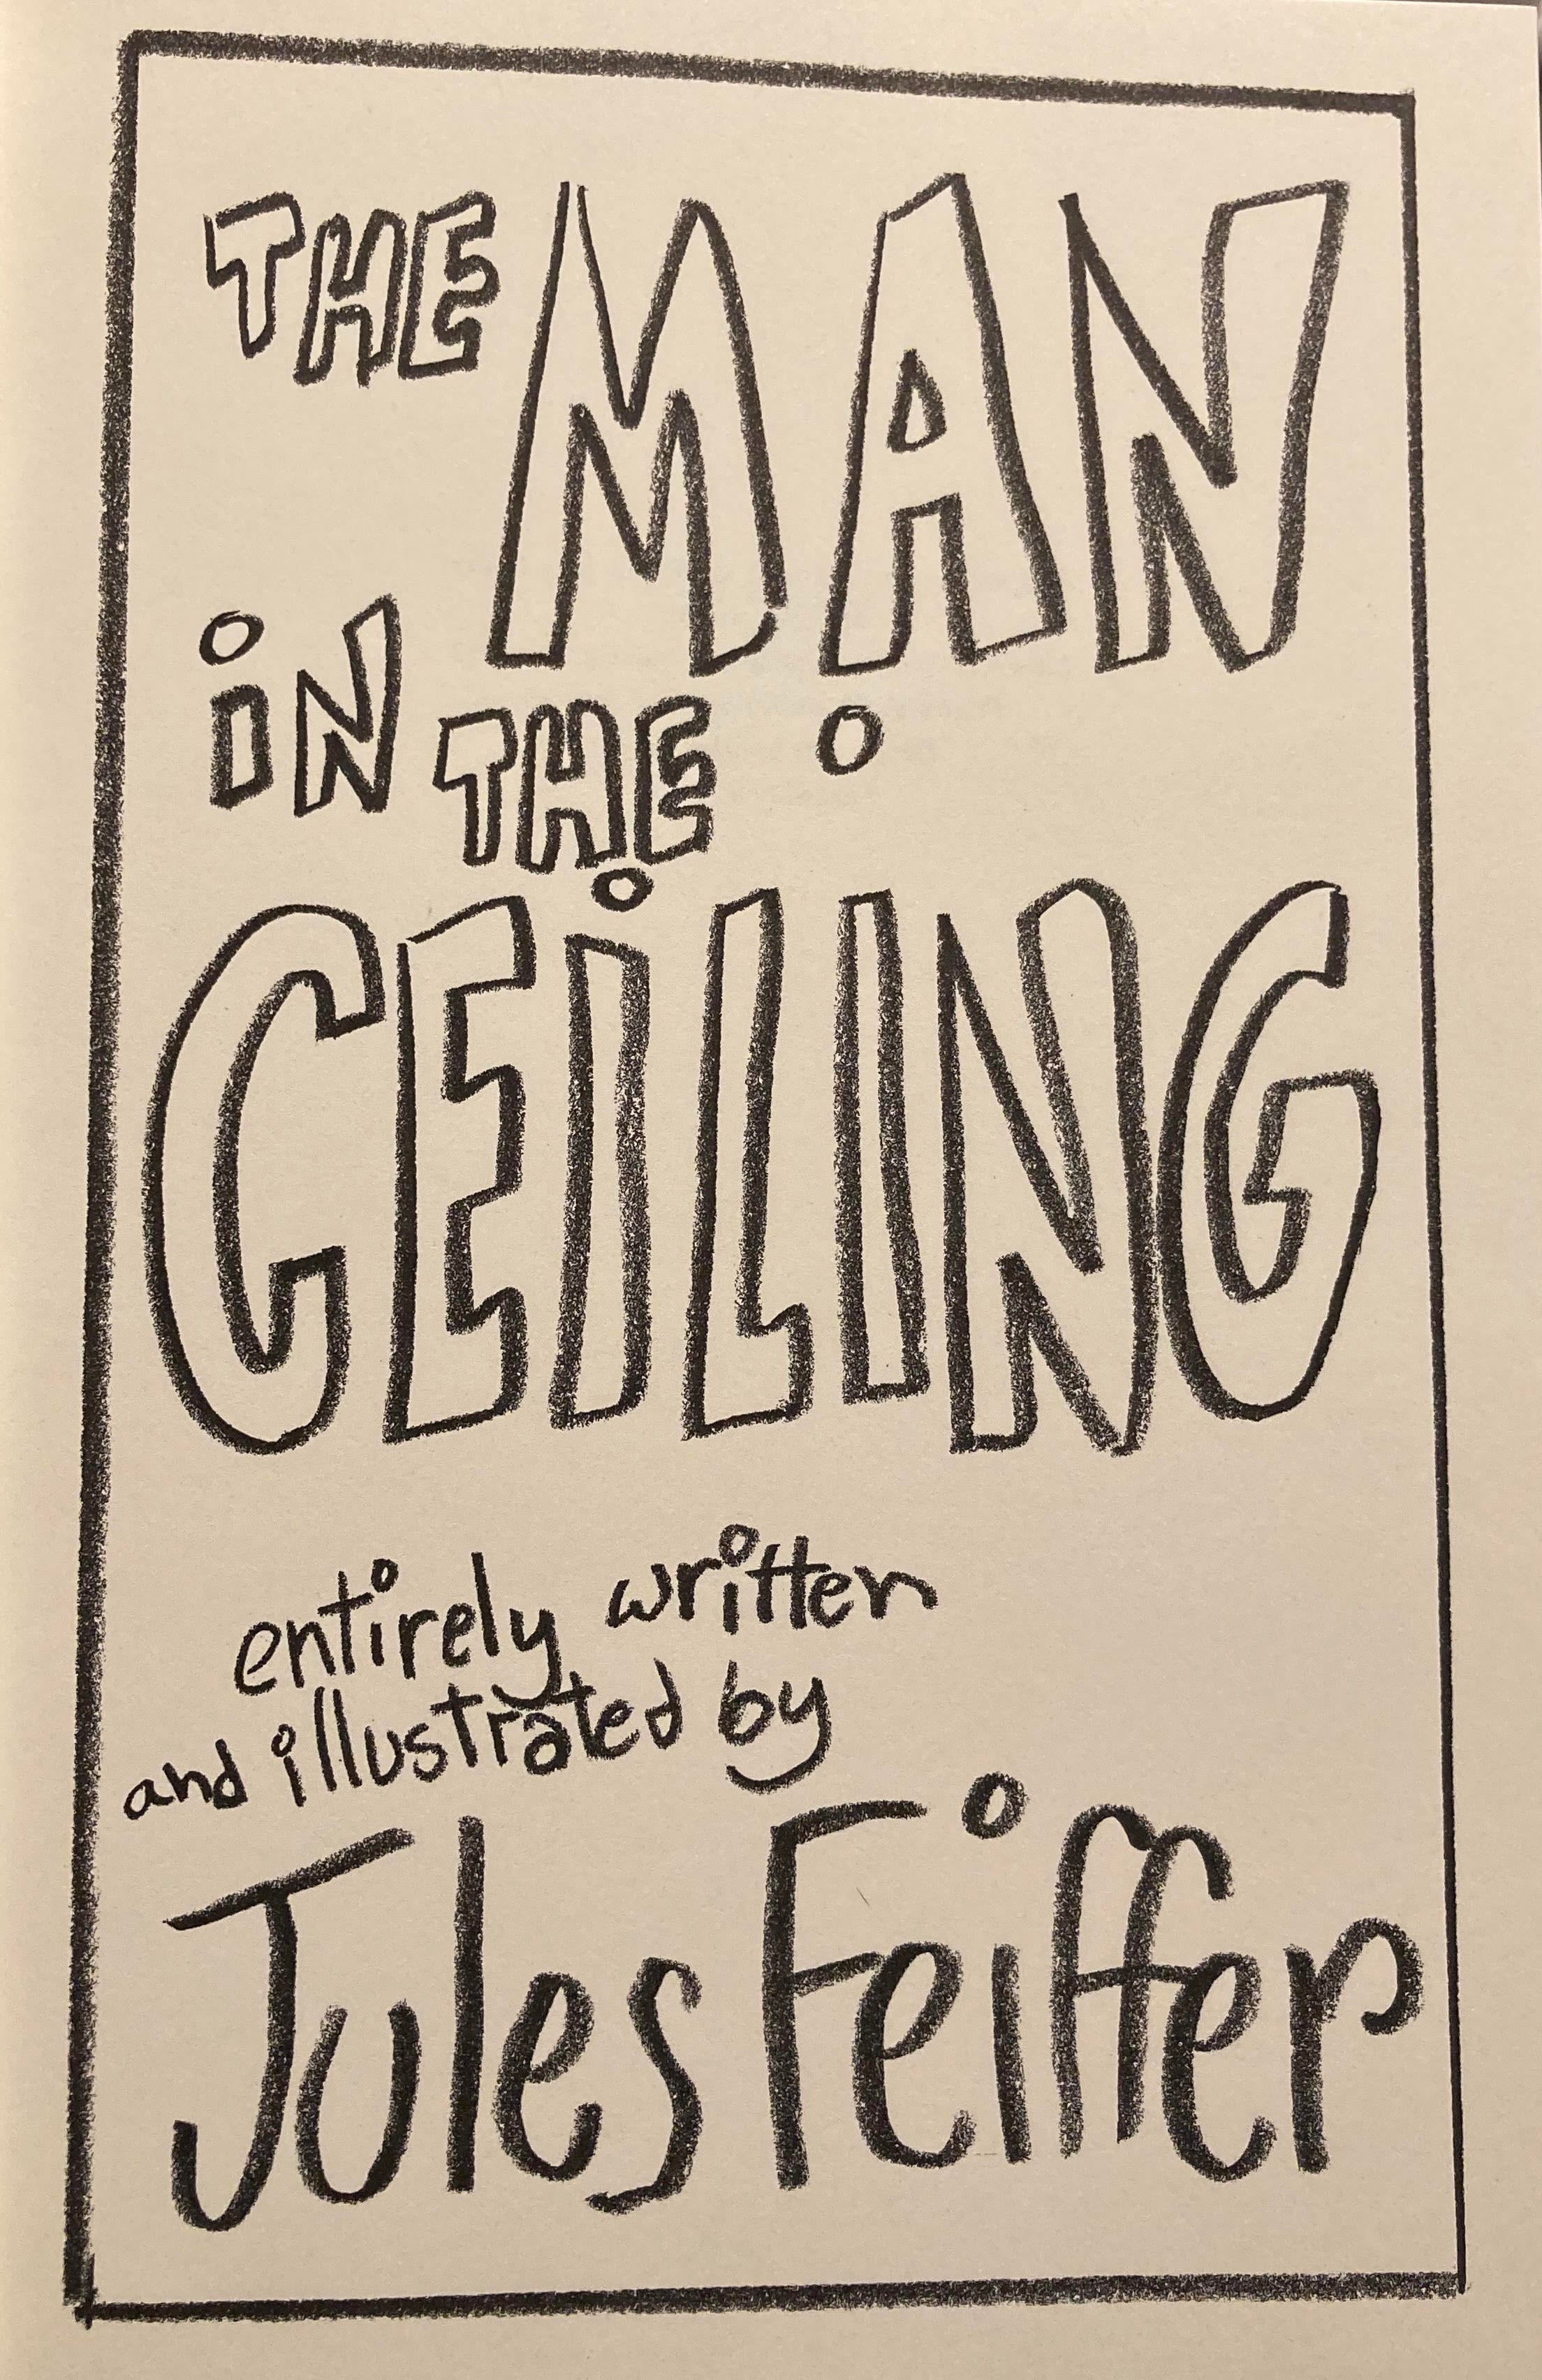 THE MAN
iN THE
CEiLiNG
entirely written
and illustrated by
Jules Feiffer